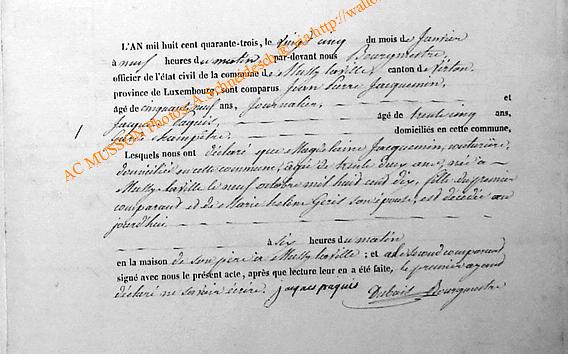 L'AN mil huit cent quarante-trois, le vingt cinq du mois de Janvier
à neuf heures du matin par-devant nous Bourgmestre,
officier de l'état civil de la commune de Mussy-la-ville, canton de Virton,
province de Luxembourg, sont comparus Jean Pierre Jacquemin,
âgé de cinquante neuf ans, Journalier, et
Jacques Paquis âgé de trente cinq ans,
Garde champêtre domiciliés en cette commune,
Lesquels nous ont déclaré que Magdelaine Jacquemin, couturière,
domiciliée en cette commune, agée de trente deux ans, née à
Mussy-la-ville le neuf octobre mil huit cent dix, fille du premier
comparant et de Marie helene son épouse, est décédée au
jourd'hui
à six heures du matin
en la maison de son père à Mussy-la-ville ; et a le second comparant
signé avec nous le présent acte, après que lecture leur en a été faite, le premier ayant
déclaré ne savoir écrire. Jacques paquis
Bourgmestre
AC MUSSON Photos: A. Schneidesch, Réa: http://wallo